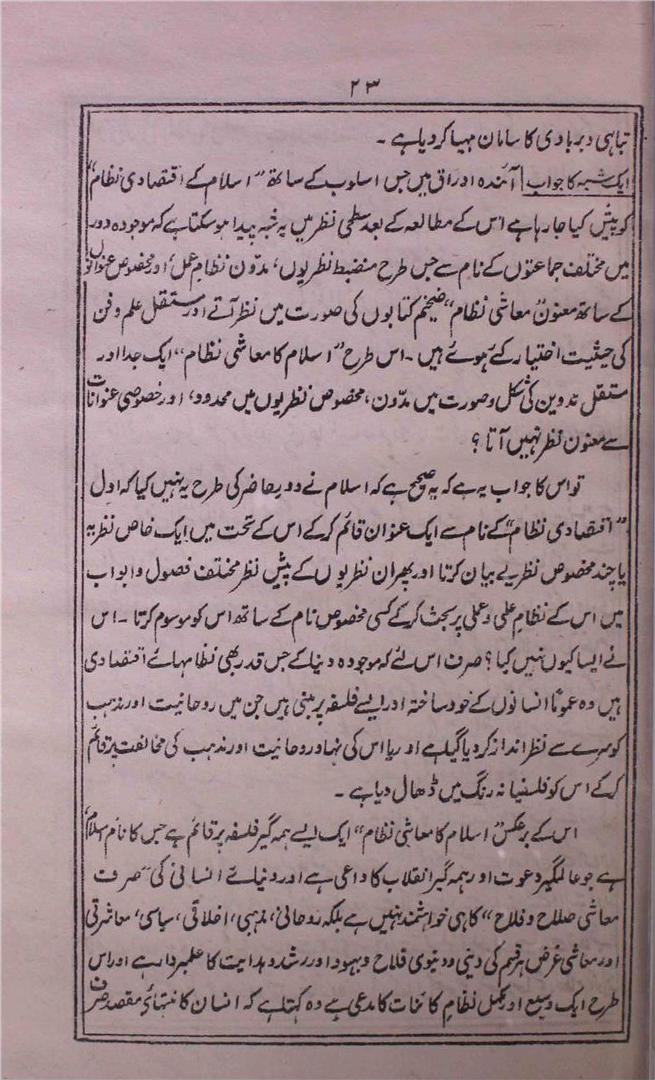 ۲۳
تباہی و بربادی کا سامان مہیا کر دیا ہے ۔
ایک شبہ کا جواب | آئندہ اوراق میں جس اسلوب کے ساتھ "اسلام کے اقتصادی نظام"
کو پیش کیا جا رہا ہے اس کے مطالعہ کے بعد سطحی نظر میں یہ شبہ پیدا ہو سکتا ہے کہ موجودہ دور
میں مختلف جماعتوں کے نام سے جس طرح منضبط نظریوں، مدوّن نظامِ عمل، اور مخصوص عنوانوں
کے ساتھ معنون "معاشی نظام" ضخیم کتابوں کی صورت میں نظر آتے اور مستقل علم و فن
کی حیثیت اختیار کئے ہوئے ہیں ۔ اس طرح "اسلام کا معاشی نظام" ایک جدا اور
مستقل تدوین کی شکل و صورت میں مدوّن، مخصوص نظریوں میں محدود، اور خصوصی عنوانات
سے معنون نظر نہیں آتا ؟
تو اس کا جواب یہ ہے کہ یہ صحیح ہے کہ اسلام نے دورِ حاضر کی طرح یہ نہیں کیا کہ اول
"اقتصادی نظام" کے نام سے ایک عنوان قائم کر کے اس کے تحت میں ایک خاص نظریہ
یا چند مخصوص نظریے بیان کرتا اور پھر ان نظریوں کے پیشِ نظر مختلف فصول و ابواب
میں اس کے نظامِ علمی و عملی پر بحث کر کے کسی مخصوص نام کے ساتھ اس کو موسوم کرتا ۔ اس
نے ایسا کیوں نہیں کیا ؟ صرف اس لئے کہ موجودہ دنیا کے جس قدر بھی نظامہائے اقتصادی
ہیں وہ عموماً انسانوں کے خود ساختہ اور ایسے فلسفہ پر مبنی ہیں جن میں روحانیت اور مذہب
کو سرے سے نظر انداز کر دیا گیا ہے اور یا اس کی نہاد روحانیت اور مذہب کی مخالفت پر قائم
کر کے اس کو فلسفیانہ رنگ میں ڈھال دیا ہے ۔
اس کے برعکس "اسلام کا معاشی نظام" ایک ایسے ہمہ گیر فلسفہ پر قائم ہے جس کا نام اسلام
ہے جو عالمگیر دعوت اور ہمہ گیر انقلاب کا داعی ہے اور دنیائے انسانی کی "صرف
معاشی صلاح و فلاح" کا ہی خواہشمند نہیں ہے بلکہ روحانی، مذہبی، اخلاقی، سیاسی، معاشرتی
اور معاشی غرض ہر قسم کی دینی و دنیوی فلاح و بہبود اور رشد و ہدایت کا علمبردار ہے اور اس
طرح ایک وسیع اور مکمل نظامِ کائنات کا مدعی ہے وہ کہتا ہے کہ انسان کا منتہائے مقصد صرف